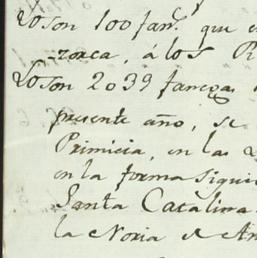 Loson 100 fan.s que e
zoaca, á los R
Loson 2039 fanegas
presente año, se
Primicia, en las
en la forma sigui
Santa Catalina
la Noria de An